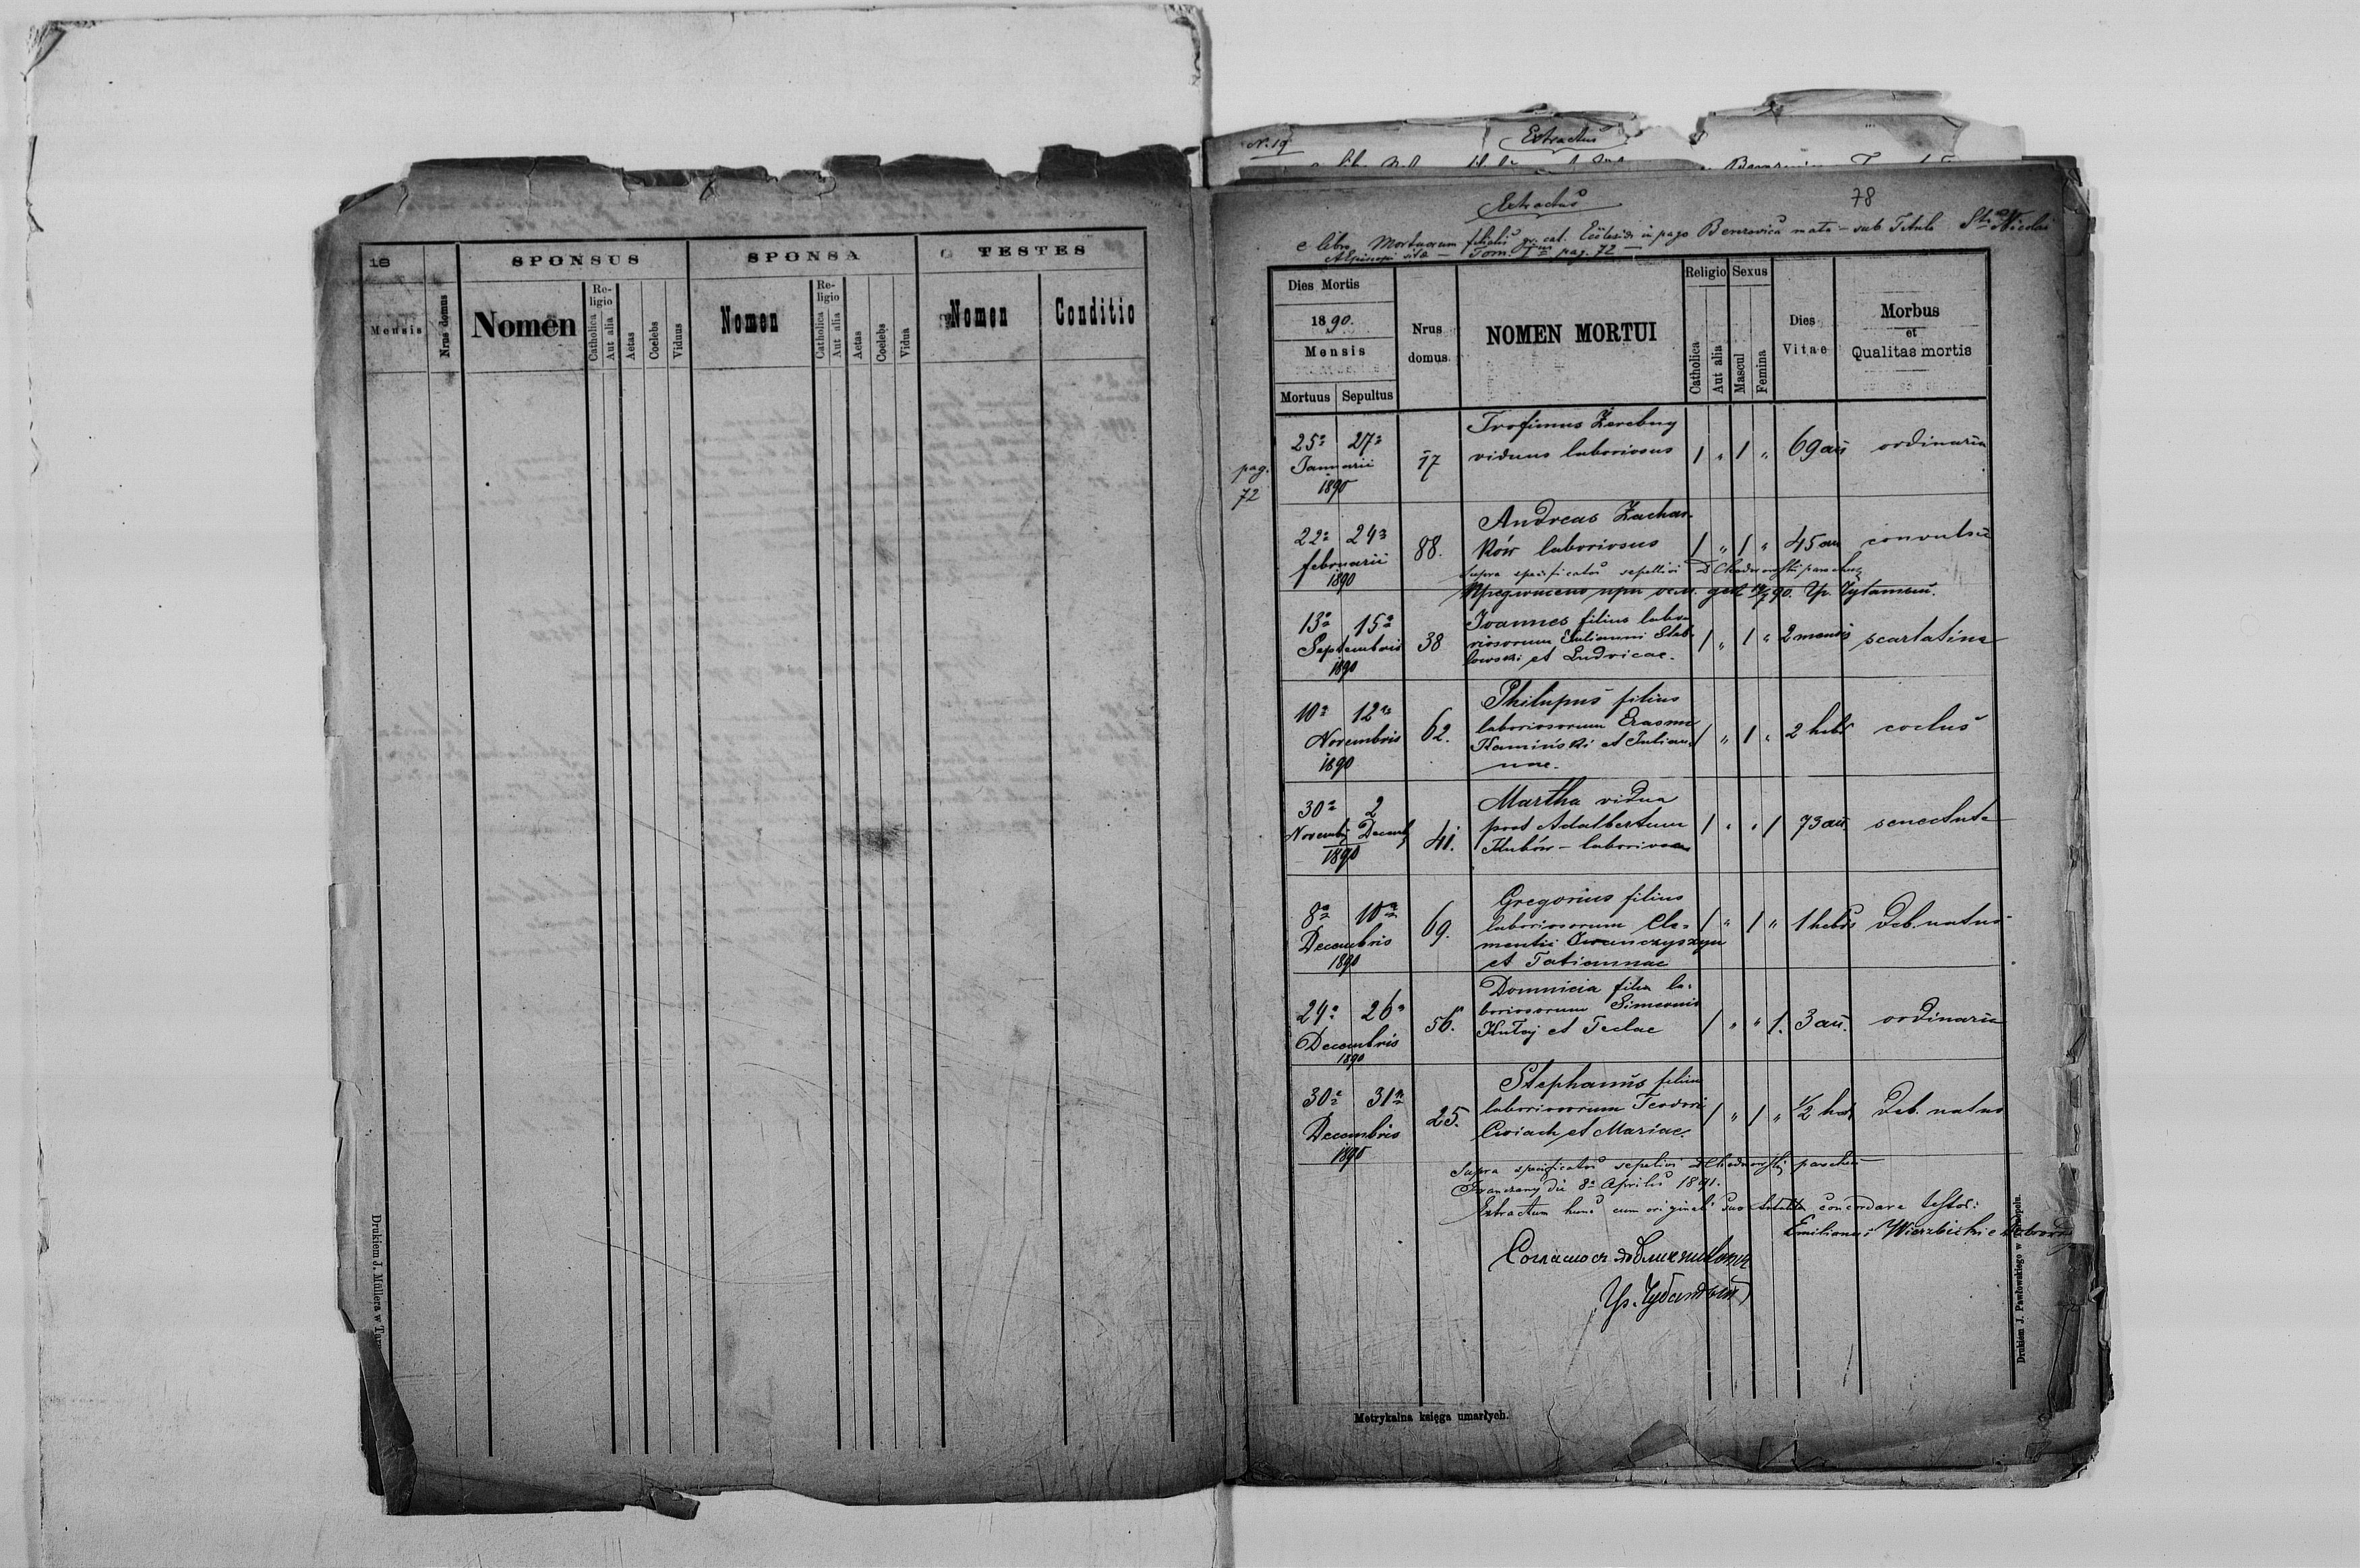 18
SPONSUS
SPONSA
TESTES
Mensis
Nrus domus
Nomen
Religio
Catholica
Aut alia
Aetas
Coelebs
Viduus
Nomen
Religio
Catholica
Aut alia
Aetas
Coelebs
Vidua
Nomen
Conditio
Drukiem J. Müllera w
N. 19
Extractus
78
Extractus
e libro Mortuorum filialis gr. cat. Ecclesiae in pago Benzovica mata sub Titulo Sti Nicolai
sita Tom. pag. 72
Dies Mortis
1890.
Mensis
Mortuus Sepultus
Nrus
domus
NOMEN MORTUI
Religio
Catholica
Aut alia
Sexus
Mascul
Femina
Dies
Vitae
Morbus
et
Qualitas mortis
pag.
72
25a 27a
Januarii
1890
17
Trofimus Zerebny
viduus laboriosus
1 " 1 "
69 an
ordinaria
22a 24a
februarii
1890
88.
Andreas Zachar-
ków laboriosus
1 " 1 "
45 an
convulsio
supra specificatos sepelivi
13a 15a
Septembris
1890
38
Joannes filius labo-
riosorum Juliani
et Ludvicae.
1 " 1 "
2 mensis
scarlatina
10a 12a
Novembris
1890
62.
Philippus filius
laboriosorum Erasmi
Kamiński et Julian-
nae.
1 " 1 "
2 hebd
coclus
30a 2
Novemb Decemb
1890
41.
Martha vidua
post Adalbertum
Kubów - laboriosa
1 " " 1
73 an
senectute
8a 10a
Decembris
1890
69.
Gregorius filius
laboriosorum Cle-
mentii Iwanczyszyn
et Tatiannae
1 " 1 "
1 hebd
Deb. natus
24a 26a
Decembris
1890
56.
Domnicia filia la-
boriosorum Simeonis
et Teclae
1 " " 1.
3 an.
ordinaria
30a 31a
Decembris
1890
25.
Stephanus filius
laboriosorum Teodori
Cwiach et Mariae.
1 " 1 "
1/2 hor
Deb. natus
Supra specificatos sepelivi parochus
die 8a Aprilis 1891.
Extractum hunc cum originali suo concordare testor:
Emilianus Wierzbicki
Metrykalna księga umarłych.
Drukiem J. Pawłowskiego w Tarnopolu.